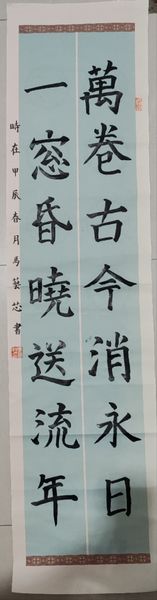 萬卷古今消永日
一窓昏曉送流年
時在甲辰春月馬藝芯書